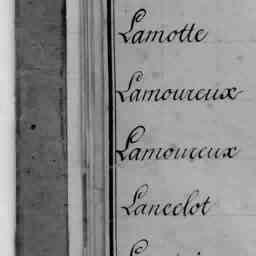 Lamotte
Lamoureux
Lamoureux
Lanclot